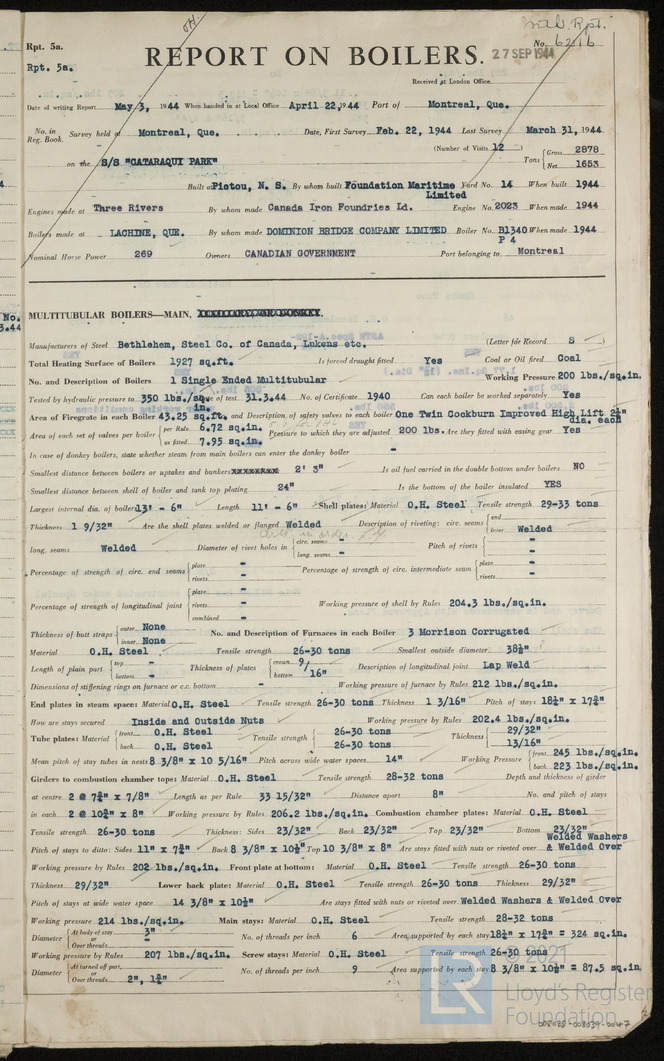 Rpt. 5a.
Rpt. 5a.
REPORT ON BOILERS.
No. 6216
27 SEP 1944
Received at London Office
Date of writing Report May 3, 1944 When handed in at Local Office April 22, 1944 Port of Montreal, Que.
No. in Reg. Book. Survey held at Montreal, Que. Date, First Survey Feb. 22, 1944 Last Survey March 31, 1944
(Number of Visits 12 )
on the S/S "CATARAQUI PARK" Tons { Gross 2878 Net 1653
Built at Pictou, N. S. By whom built Foundation Maritime Limited Yard No. 14 When built 1944
Engines made at Three Rivers By whom made Canada Iron Foundries Ld. Engine No. 2023 When made 1944
Boilers made at LACHINE, QUE. By whom made DOMINION BRIDGE COMPANY LIMITED Boiler No. B1340 P 4 When made 1944
Nominal Horse Power 269 Owners CANADIAN GOVERNMENT Port belonging to Montreal
MULTITUBULAR BOILERS—MAIN,
Manufacturers of Steel Bethlehem, Steel Co. of Canada, Lukens etc. (Letter for Record S )
Total Heating Surface of Boilers 1927 sq.ft. Is forced draught fitted Yes Coal or Oil fired Coal
No. and Description of Boilers 1 Single Ended Multitubular Working Pressure 200 lbs./sq.in.
Tested by hydraulic pressure to 350 lbs./sq.in. Date of test 31.3.44 No. of Certificate 1940 Can each boiler be worked separately Yes
Area of Firegrate in each Boiler 43.25 sq.ft. No. and Description of safety valves to each boiler One Twin Cockburn Improved High Lift 2½" dia. each
Area of each set of valves per boiler { per Rule 6.72 sq.in. as fitted 7.95 sq.in. Pressure to which they are adjusted 200 lbs. Are they fitted with easing gear Yes
In case of donkey boilers, state whether steam from main boilers can enter the donkey boiler -
Smallest distance between boilers or uptakes and bunkers 2' 3" Is oil fuel carried in the double bottom under boilers NO
Smallest distance between shell of boiler and tank top plating 24" Is the bottom of the boiler insulated YES
Largest internal dia. of boilers 13' - 6" Length 11' - 6" Shell plates: Material O.H. Steel Tensile strength 29-33 tons
Thickness 1 9/32" Are the shell plates welded or flanged Welded Description of riveting: circ. seams { end inter. Welded
long. seams Welded Diameter of rivet holes in { circ. seams - long. seams - Pitch of rivets { - -
Percentage of strength of circ. end seams { plate - rivets - Percentage of strength of circ. intermediate seam { plate - rivets -
Percentage of strength of longitudinal joint { plate - rivets - combined - Working pressure of shell by Rules 204.3 lbs./sq.in.
Thickness of butt straps { outer None inner None No. and Description of Furnaces in each Boiler 3 Morrison Corrugated
Material O.H. Steel Tensile strength 26-30 tons Smallest outside diameter 38½"
Length of plain part { top - bottom - Thickness of plates { crown bottom 9/16" Description of longitudinal joint Lap Weld
Dimensions of stiffening rings on furnace or c.c. bottom - Working pressure of furnace by Rules 212 lbs./sq.in.
End plates in steam space: Material O.H. Steel Tensile strength 26-30 tons Thickness 1 3/16" Pitch of stays 18½" x 17¾"
How are stays secured Inside and Outside Nuts Working pressure by Rules 202.4 lbs./sq.in.
Tube plates: Material { front O.H. Steel back O.H. Steel Tensile strength { 26-30 tons 26-30 tons Thickness { 29/32" 13/16"
Mean pitch of stay tubes in nests 8 3/8" x 10 5/16" Pitch across wide water spaces 14" Working Pressure { front 245 lbs./sq.in. back 223 lbs./sq.in.
Girders to combustion chamber tops: Material O.H. Steel Tensile strength 28-32 tons Depth and thickness of girder
at centre 2 @ 7¾" x 7/8" Length as per Rule 33 15/32" Distance apart 8" No. and pitch of stays
in each 2 @ 10¾" x 8" Working pressure by Rules 206.2 lbs./sq.in. Combustion chamber plates: Material O.H. Steel
Tensile strength 26-30 tons Thickness: Sides 23/32" Back 23/32" Top 23/32" Bottom 23/32"
Pitch of stays to ditto: Sides 11" x 7¾" Back 8 3/8" x 10½" Top 10 3/8" x 8" Are stays fitted with nuts or riveted over Welded Washers & Welded Over
Working pressure by Rules 202 lbs./sq.in. Front plate at bottom: Material O.H. Steel Tensile strength 26-30 tons
Thickness 29/32" Lower back plate: Material O.H. Steel Tensile strength 26-30 tons Thickness 29/32"
Pitch of stays at wide water space 14 3/8" x 10½" Are stays fitted with nuts or riveted over Welded Washers & Welded Over
Working pressure 214 lbs./sq.in. Main stays: Material O.H. Steel Tensile strength 28-32 tons
Diameter { At body of stay, or Over threads 3" - No. of threads per inch 6 Area supported by each stay 18½" x 17¾" = 324 sq.in.
Working pressure by Rules 207 lbs./sq.in. Screw stays: Material O.H. Steel Tensile strength 26-30 tons
Diameter { At turned off part, or Over threads 2", 1¾" No. of threads per inch 9 Area supported by each stay 8 3/8" x 10½" = 87.5 sq.in.
© 2021
LR
Lloyd's Register
Foundation
008032-008039-0047